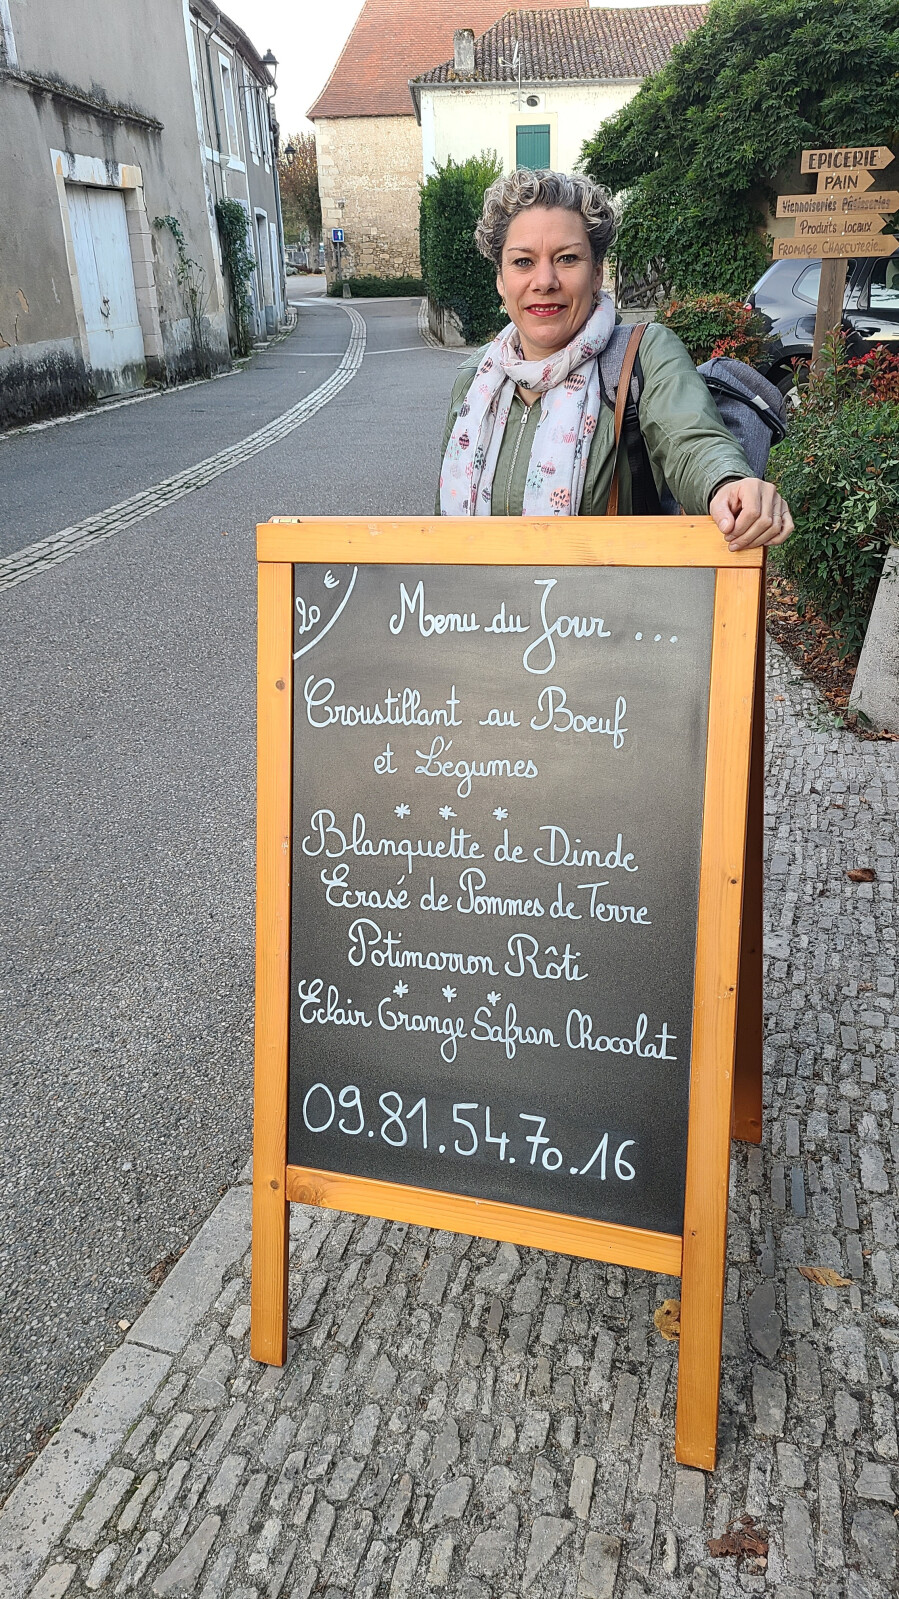 EPICERIE
PAIN
Viennoiseries Pâtisseries
Produits locaux
FROMAGE CHARCUTERIE...
20 €
Menu du Jour ...
Croustillant au Boeuf
et Légumes
* * *
Blanquette de Dinde
Ecrasé de Pommes de Terre
Potimarron Rôti
* * *
Eclair Orange Safran Chocolat
09.81.54.70.16